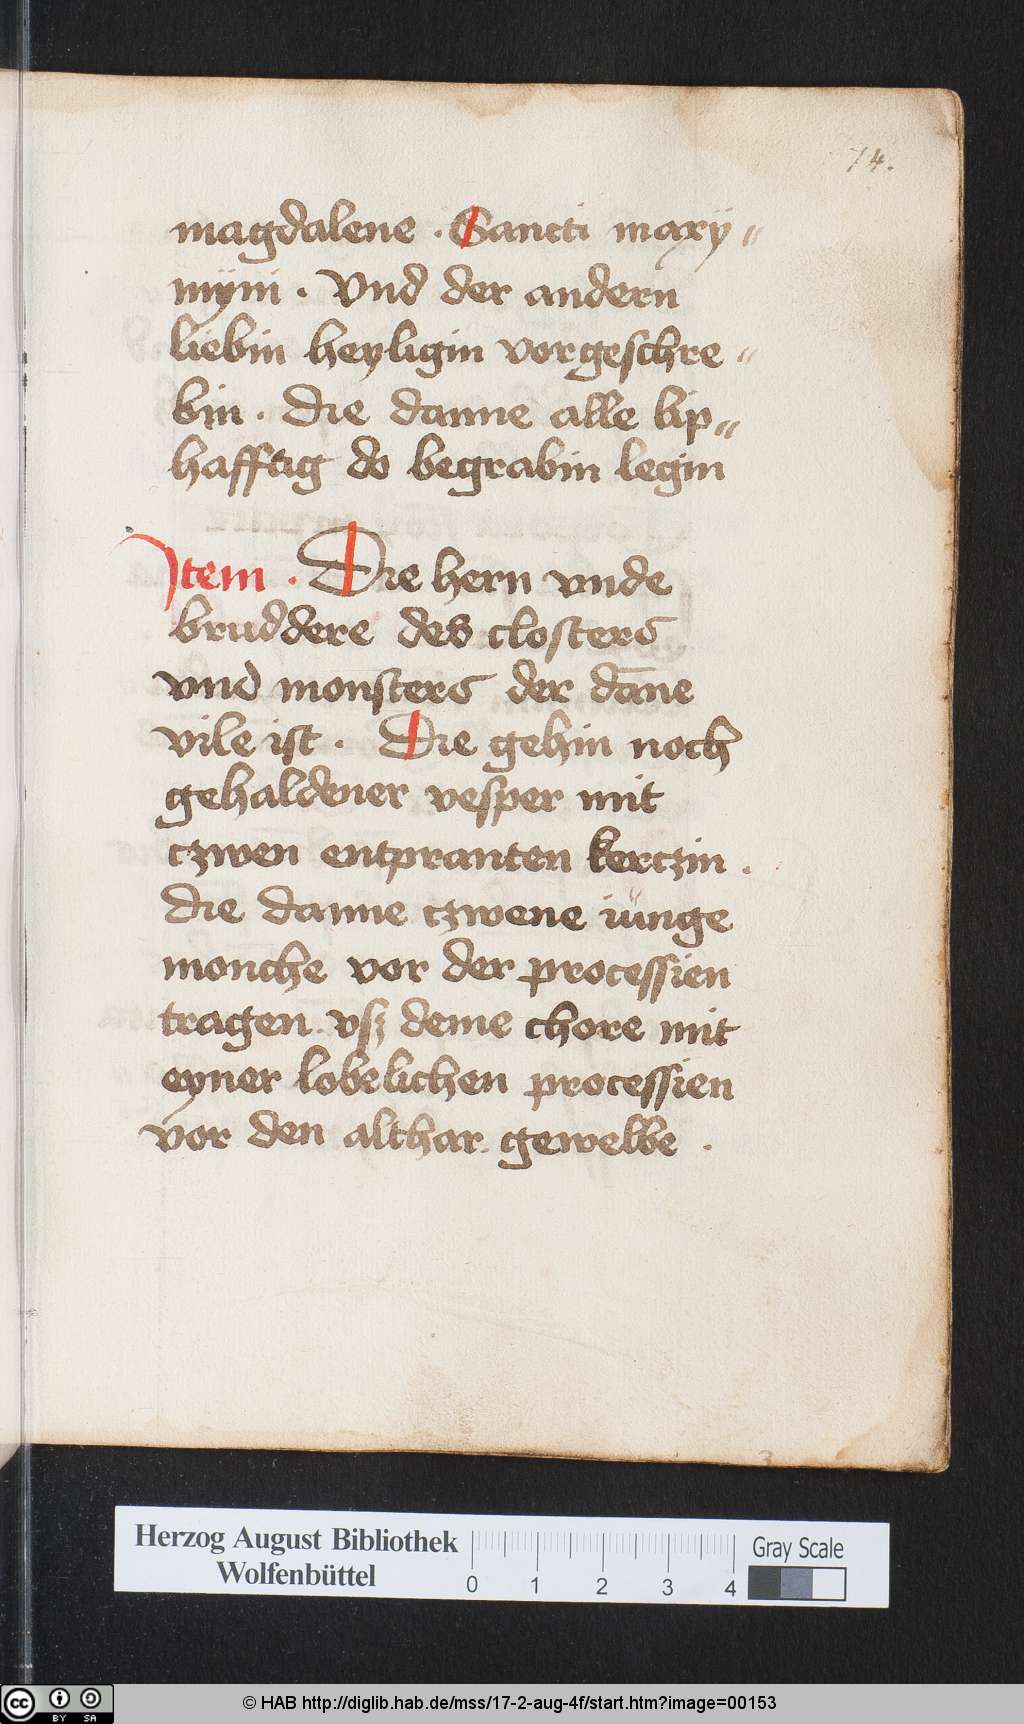 74.
magdalene . Sancti maxÿ〃
mÿni . Vnd der andern
liebin heyligin vorgeschre〃
bin . die danne alle lip〃
hafftig do begrabin legin
Item . Die hern vnde
bruddere des closters
vnd monsters der dāne
vile ist . Die gehin noch
gehaldener vesper mit
czwen entpranten kerczin .
die danne czwene iünge
monche vor der processien
tragen vsz deme chore mit
eyner lobelichen processien
vor den althar . gewelbe .
Herzog August Bibliothek
Wolfenbüttel
0 1 2 3 4
Gray Scale
cc BY SA
© HAB http://diglib.hab.de/mss/17-2-aug-4f/start.htm?image=00153